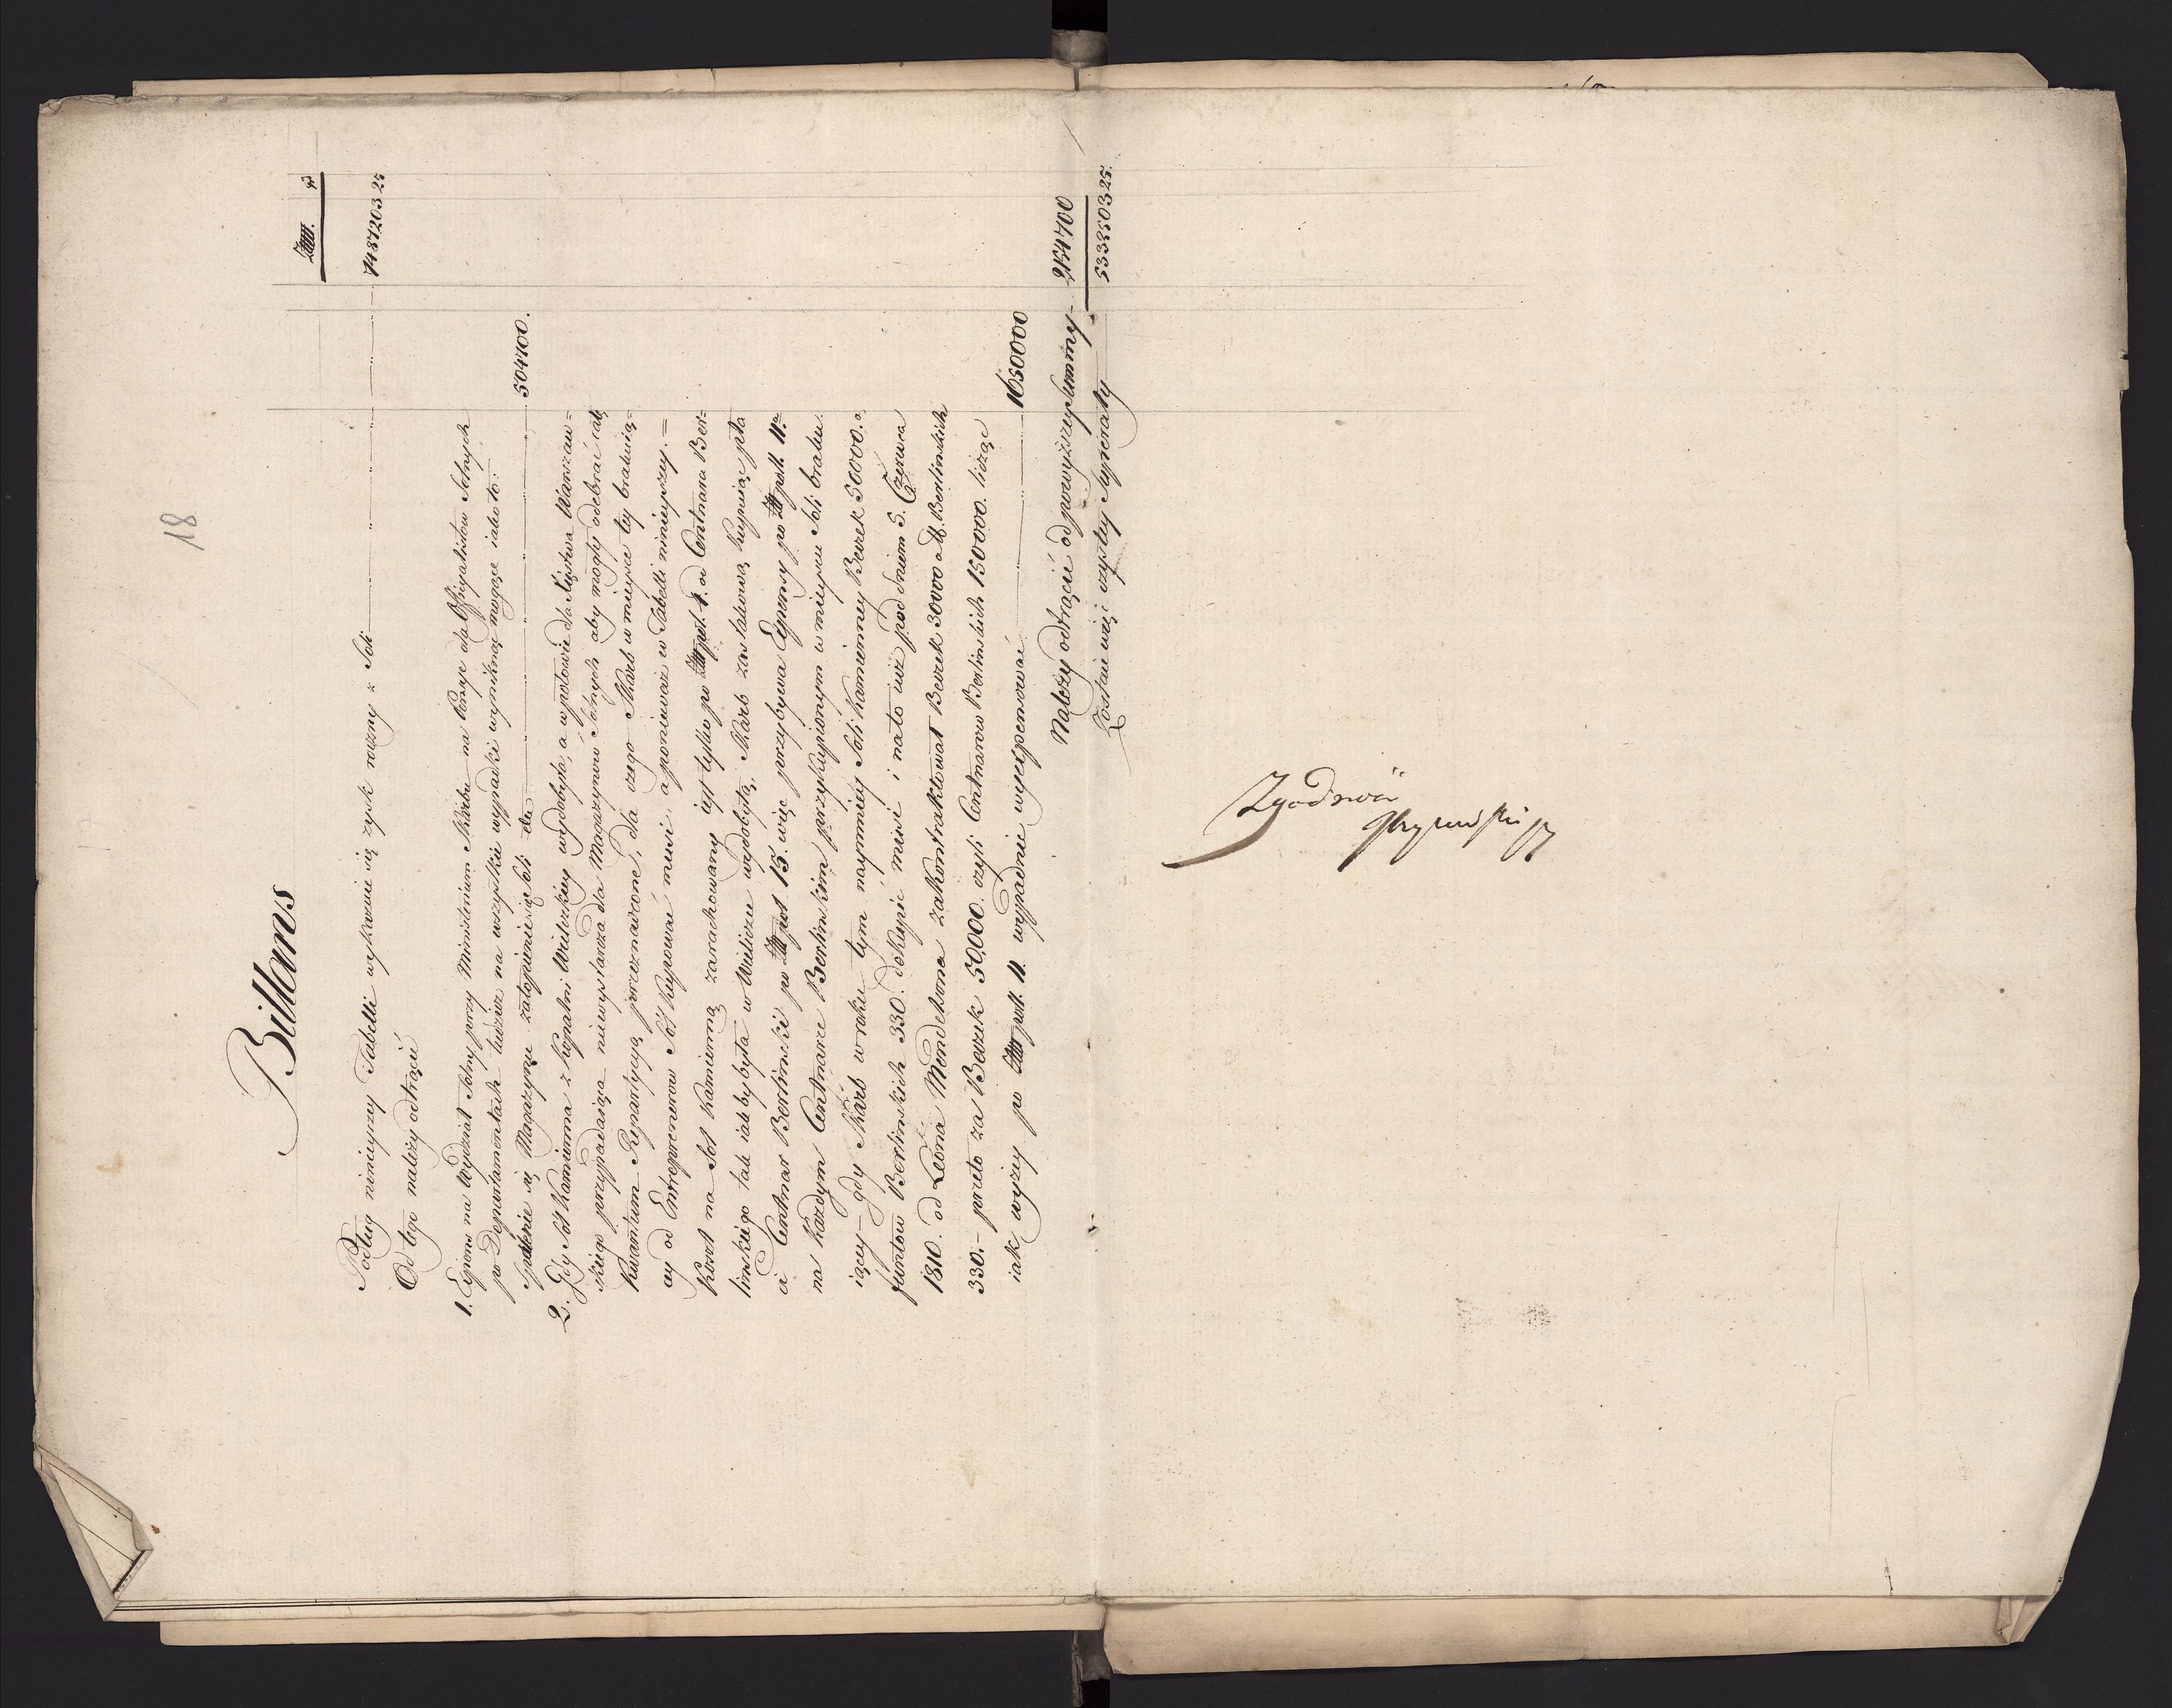 18
Billans
Złłł. gr
Podług ninieyszey Tabelli wykazuie się zysk roczny z Soli 7487203 25
Od tego należy odtrącić
1. Expens na Wydział Solny przy Ministerium Skarbu na Pensye dla Offycyalistów Solnych
po Departamentach tudzież na wszystkie wypadki wyniknąć mogące iako to:
spalenie się Magazynu zatopienie się Soli etc. 504700.
2. Gdy Sól Kamienna z Kopalni Wielickiey wydobyta, a w połowie do Xięstwa Warszaw=
skiego przypadaiąca niewystarcza do Magazynów Solnych aby mogły odebrać całą
kwantum Repartycyą przeznaczone, dla czego Skarb w mieysce tey brakuią=
cey od Entreprenerow Sól kupować musi, a ponieważ w Tabelli ninieyszey =
Koszt na Sol Kamienną zarachowany iest tylko po Złł pol. 4. od Centnara Ber=
linskiego tak iak by była w Wieliczce wydobytą, Skarb zas takową kupuiąc pła
ci Centnar Berlinski po Złł pol 15. więc przybywa Expensy po Złł poll. 11.
na każdym Centnarze Berlinskim przykupionym w mieyscu Soli braku=
iącey – gdy Skarb w roku tym naymniey Soli kamienney Beczek 50000. a
funtow Berlinskich 330. dokupić musi i na to iuż pod dniem 5. Czerwca
1810. od Leona Mendelsona zakontraktował Beczek 30000 a ℔. Berlinskich
330. – przeto za Beczek 50,000. czyli Centnarow Berlinskich 150000. licząc
iak wyżey po Złł poll. 11. wypadnie wyexpensować 1650000
Należy odtrącić od powyższey Summy 2154700
Zostaie więc czystey Intraty 5332503 25.
Zgodność